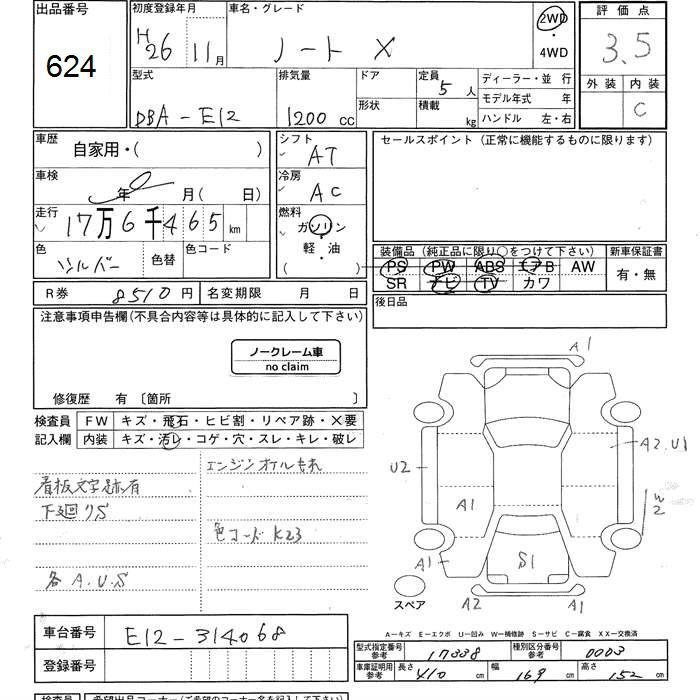 出品番号
624
初度登録年月
H26 11月
車名・グレード
ノート X
2WD
・
4WD
評価点
3.5
外装 内装
C
型式
DBA-E12
排気量
1200 cc
ドア
形状
定員 5 人
積載 kg
ディーラー・並 行
モデル年式 年
ハンドル 左・右
車歴
自家用・( )
車検
年 月( 日)
走行
17万6千465 km
色
シルバー
色替
色コード
シフト
AT
冷房
AC
燃料
ガソリン
・
軽・油
( )
セールスポイント (正常に機能するものに限ります)
装備品 (純正品に限り○をつけて下さい)
PS PW ABS エアB AW
SR ナビ TV カワ
新車保証書
有・無
R券 8510円
名変期限 月 日
後日品
注意事項申告欄(不具合内容等は具体的に記入して下さい)
ノークレーム車
no claim
修復歴 有 〔箇所 〕
検査員
記入欄
FW キズ・飛石・ヒビ割・リペア跡・X要
内装 キズ・汚レ・コゲ・穴・スレ・キレ・破レ
エンジンオイルもれ
看板文字跡有
下廻りS
色コード K23
各A.U.S
A1
A2.U1
U2
A1
W2
A1
S1
A2
A1
スペア
A－キズ E－エクボ U－凹み W－補修跡 S－サビ C－腐食 XX－交換済
車台番号
E12-314068
登録番号
型式指定番号
参考
17338
種別区分番号
参考
0003
車庫証明用
参考
長さ 410 cm
幅 169 cm
高さ 152 cm
検査員
希望出品コーナー(ご希望のコーナー名を記入して下さい)